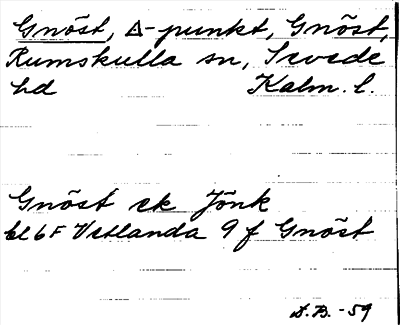 Gnöst, △-punkt, Gnöst,
Rumskulla sn, Sevede
hd Kalm. l.
Gnöst ek Jönk
bl 6F Vetlanda 9f Gnöst
S.B. -59